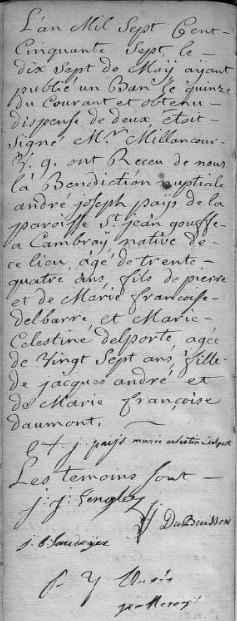 L'an Mil Sept Cent-
Cinquante Sept le
dix Sept de May ayant
publié un Ban le quinze
du Courant et obtenu
dispense de deux étoit
Signé Mr Millancour
V. g. ont Receu de nous
la Benediction nuptiale
andré joseph païs de la
paroisse St jean gouffe
a Cambray native de
ce lieu âgé de trente-
quatre ans fils de pierre
et de Marie françoise
delbarre et Marie-
Celestine delporte, agée
de Vingt Sept ans fille
de jacques andré et
de Marie françoise
daumont.
a + j. païs marie celestine delport
Les temoins sont
DuBuisson